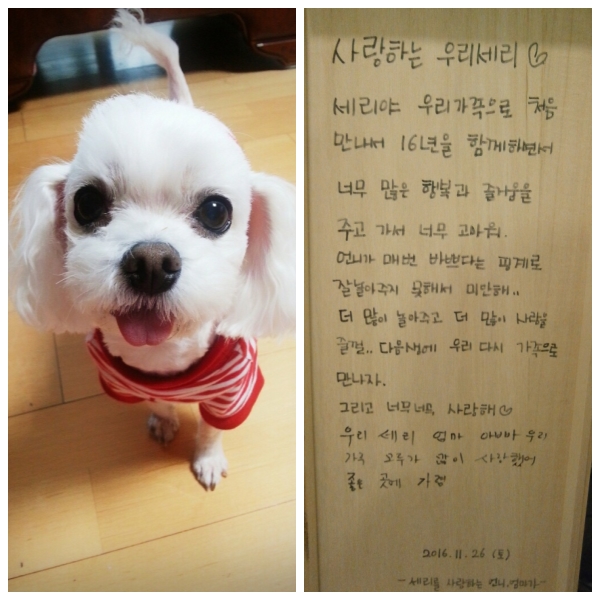 사랑하는 우리세리♡
세리야 우리가족으로 처음
만나서 16년을 함께하면서
너무 많은 행복과 즐거움을
주고 가서 너무 고마워.
언니가 매번 바쁘다는 핑계로
잘놀아주지 못해서 미안해..
더 많이 놀아주고 더 많이 사랑을
줄껄.. 다음생에 우리 다시 가족으로
만나자.
그리고 너무너무 사랑해♡
우리 세리 엄마 아빠 우리
가족 모두가 많이 사랑했어
좋은 곳에 가렴
2016.11.26 (토)
-세리를 사랑하는 언니.엄마가-